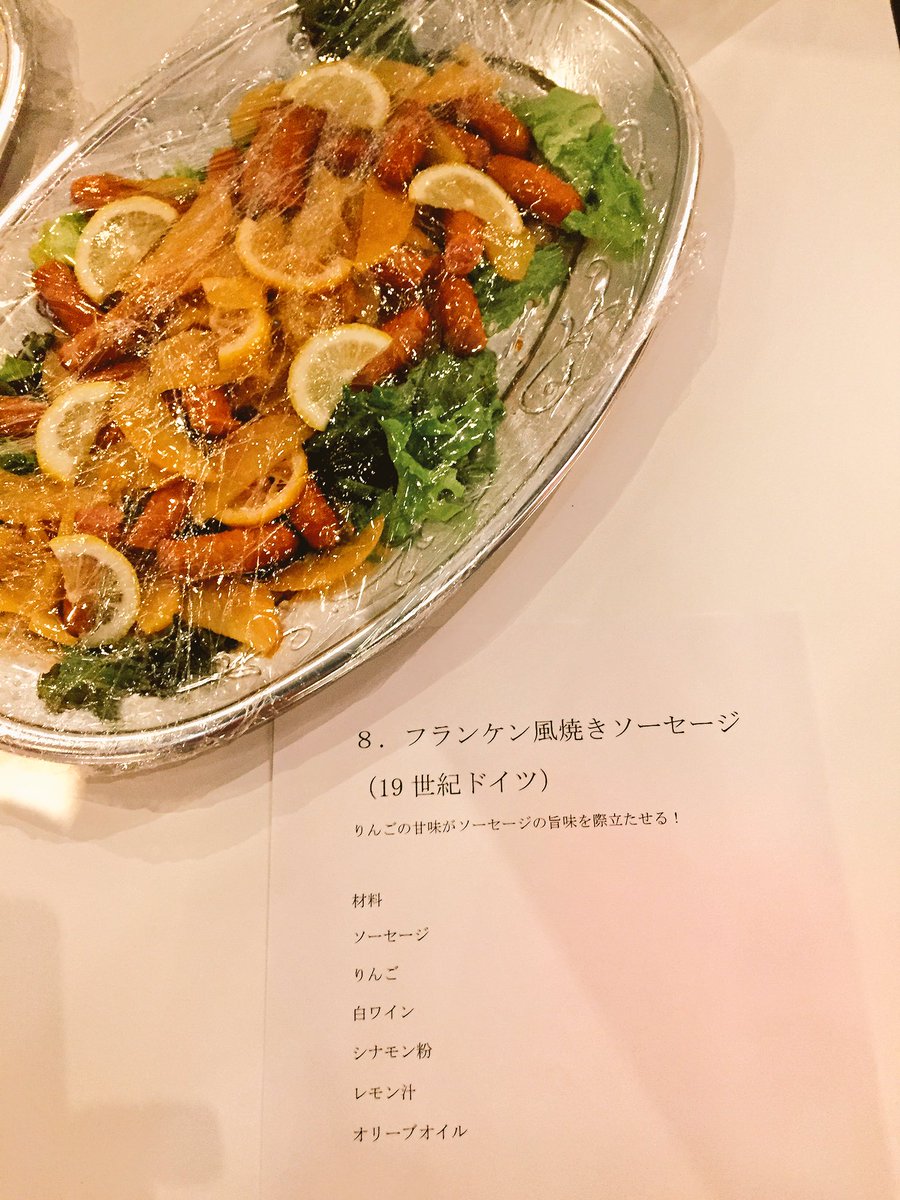 ８．フランケン風焼きソーセージ
（19 世紀ドイツ）
りんごの甘味がソーセージの旨味を際立たせる！
材料
ソーセージ
りんご
白ワイン
シナモン粉
レモン汁
オリーブオイル